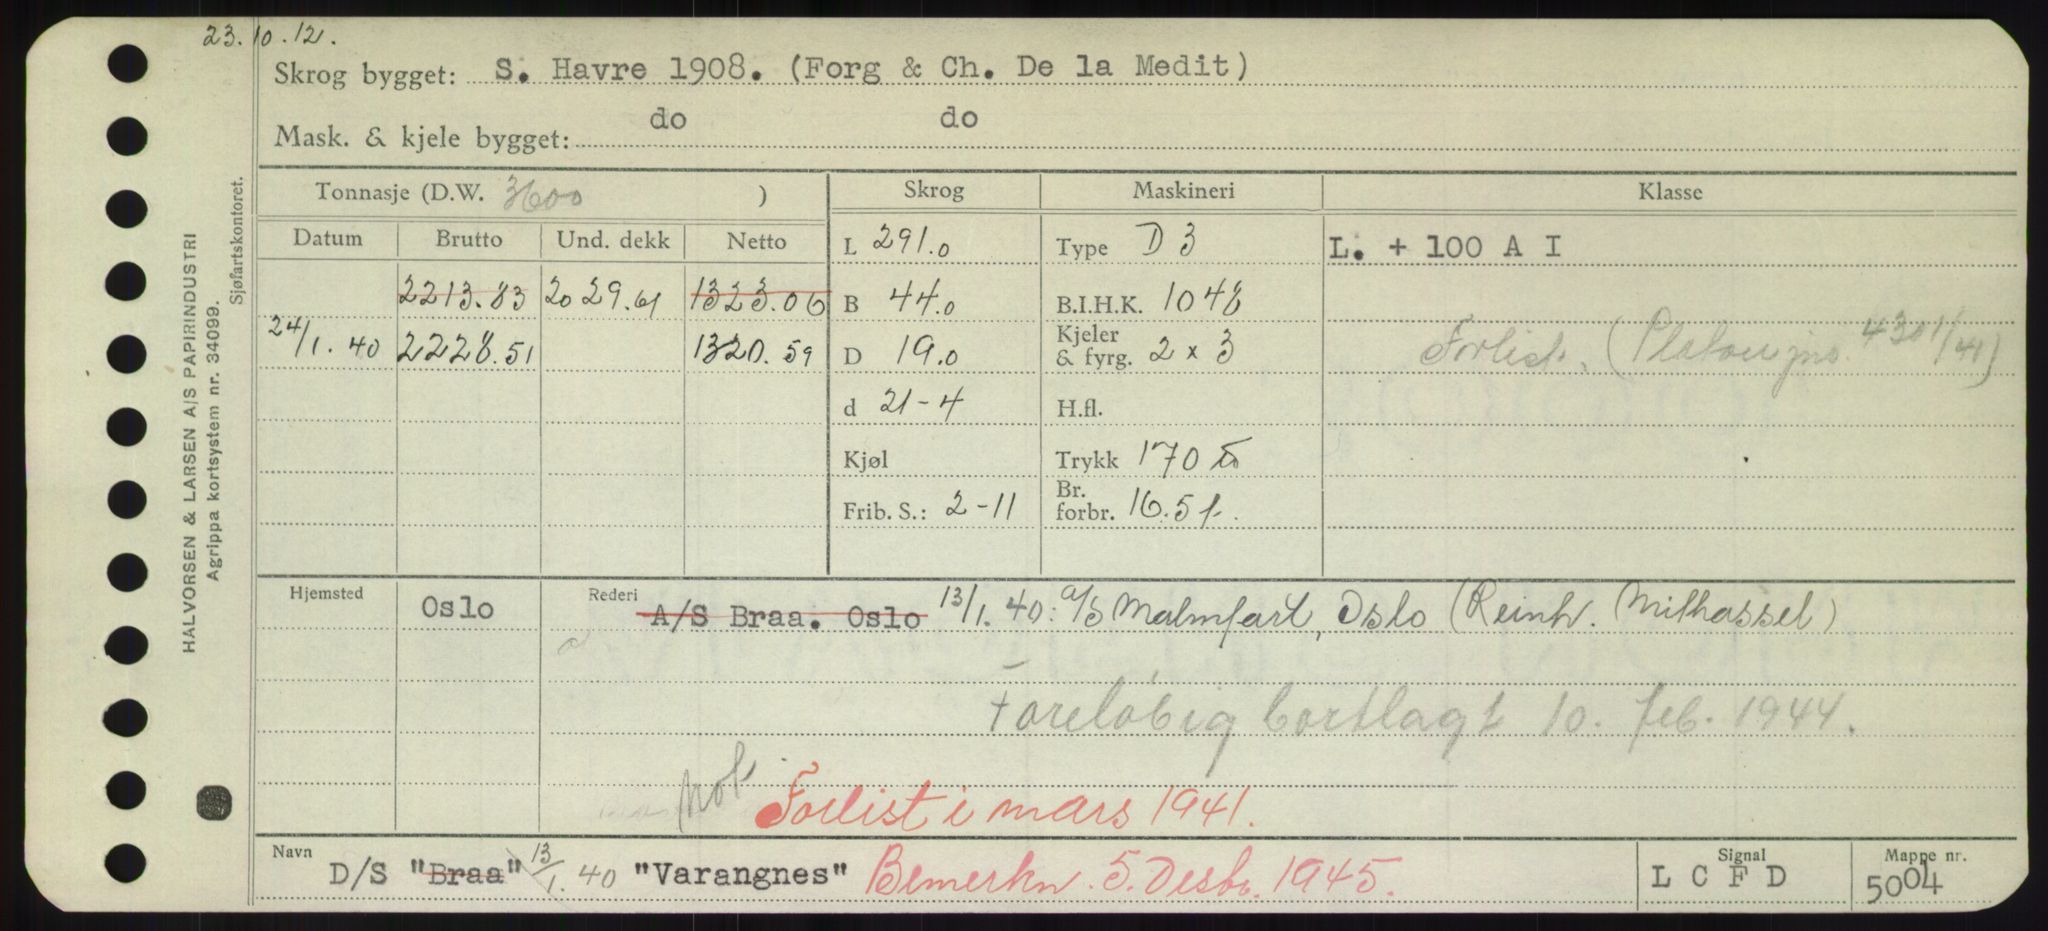 23.10.12.
Skrog bygget: S. Havre 1908. (Forg & Ch. De la Medit)
Mask. & kjele bygget: do do
HALVORSEN & LARSEN A/S PAPIRINDUSTRI
Agrippa kortsystem nr. 34099.
Sjøfartskontoret.
Tonnasje (D.W. 3600 ) Skrog Maskineri Klasse
Datum Brutto Und. dekk Netto L 291.0 Type D 3 L. + 100 A I
2213.83 2029.61 1323.06 B 44.0 B.I.H.K. 1048
24/1.40 2228.51 1320.59 D 19.0 Kjeler & fyrg. 2 x 3 Forlist. (Platou jnr. 4301/41)
d 21-4 H.fl.
Kjøl Trykk 170
Frib. S.: 2-11 Br. forbr. 16.5 t.
Hjemsted Oslo Rederi A/S Braa. Oslo 13/1.40: A/S Malmfart, Oslo (Reinh. Mithassel)
Foreløbig bortlagt 10. feb. 1944.
Forlist i mars 1941.
Navn D/S "Braa" 13/1.40 "Varangnes" Bemerkn. 5. Desbr. 1945. Signal L C F D Mappe nr. 5004